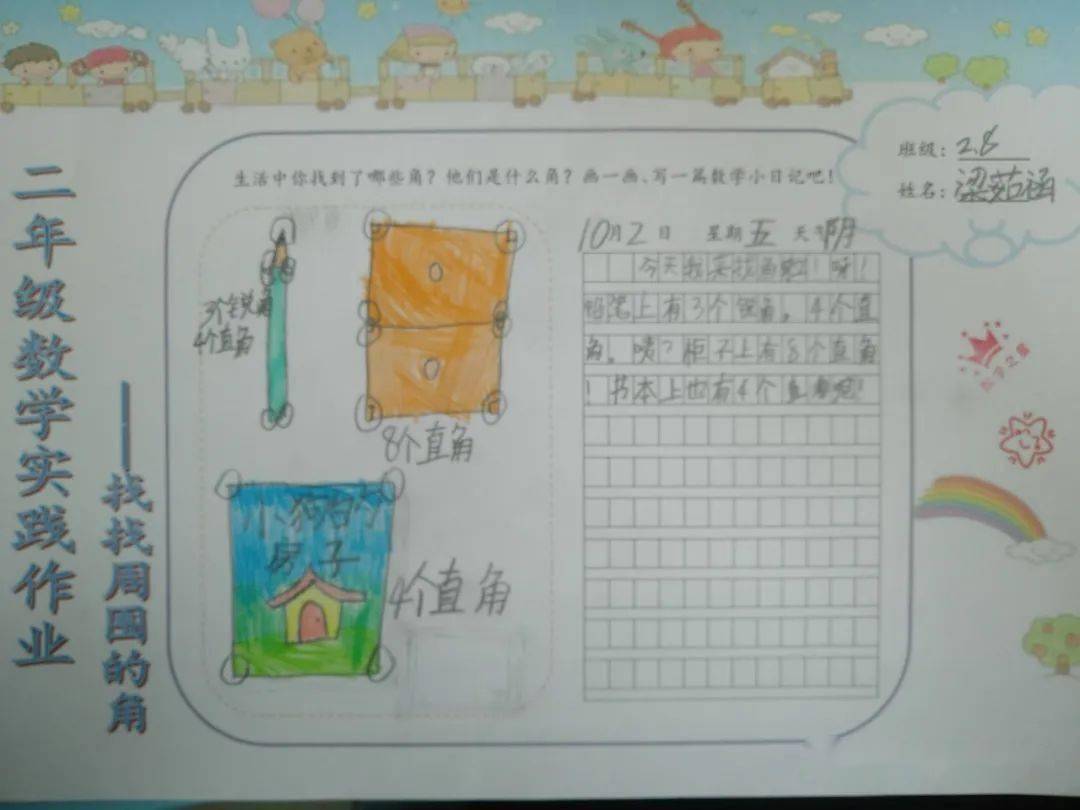 二年级数学实践作业
——找找周围的角
班级：2.8
姓名：梁茹涵
生活中你找到了哪些角？他们是什么角？画一画、写一篇数学小日记吧！
3个锐角
4个直角
8个直角
小狗的
房子
4个直角
10月2日 星期五 天气阴
今天我来找角啦！呀！
铅笔上有3个锐角。4个直
角。咦？柜子上有8个直角
！书本上也有4个直角呢！
数学之星